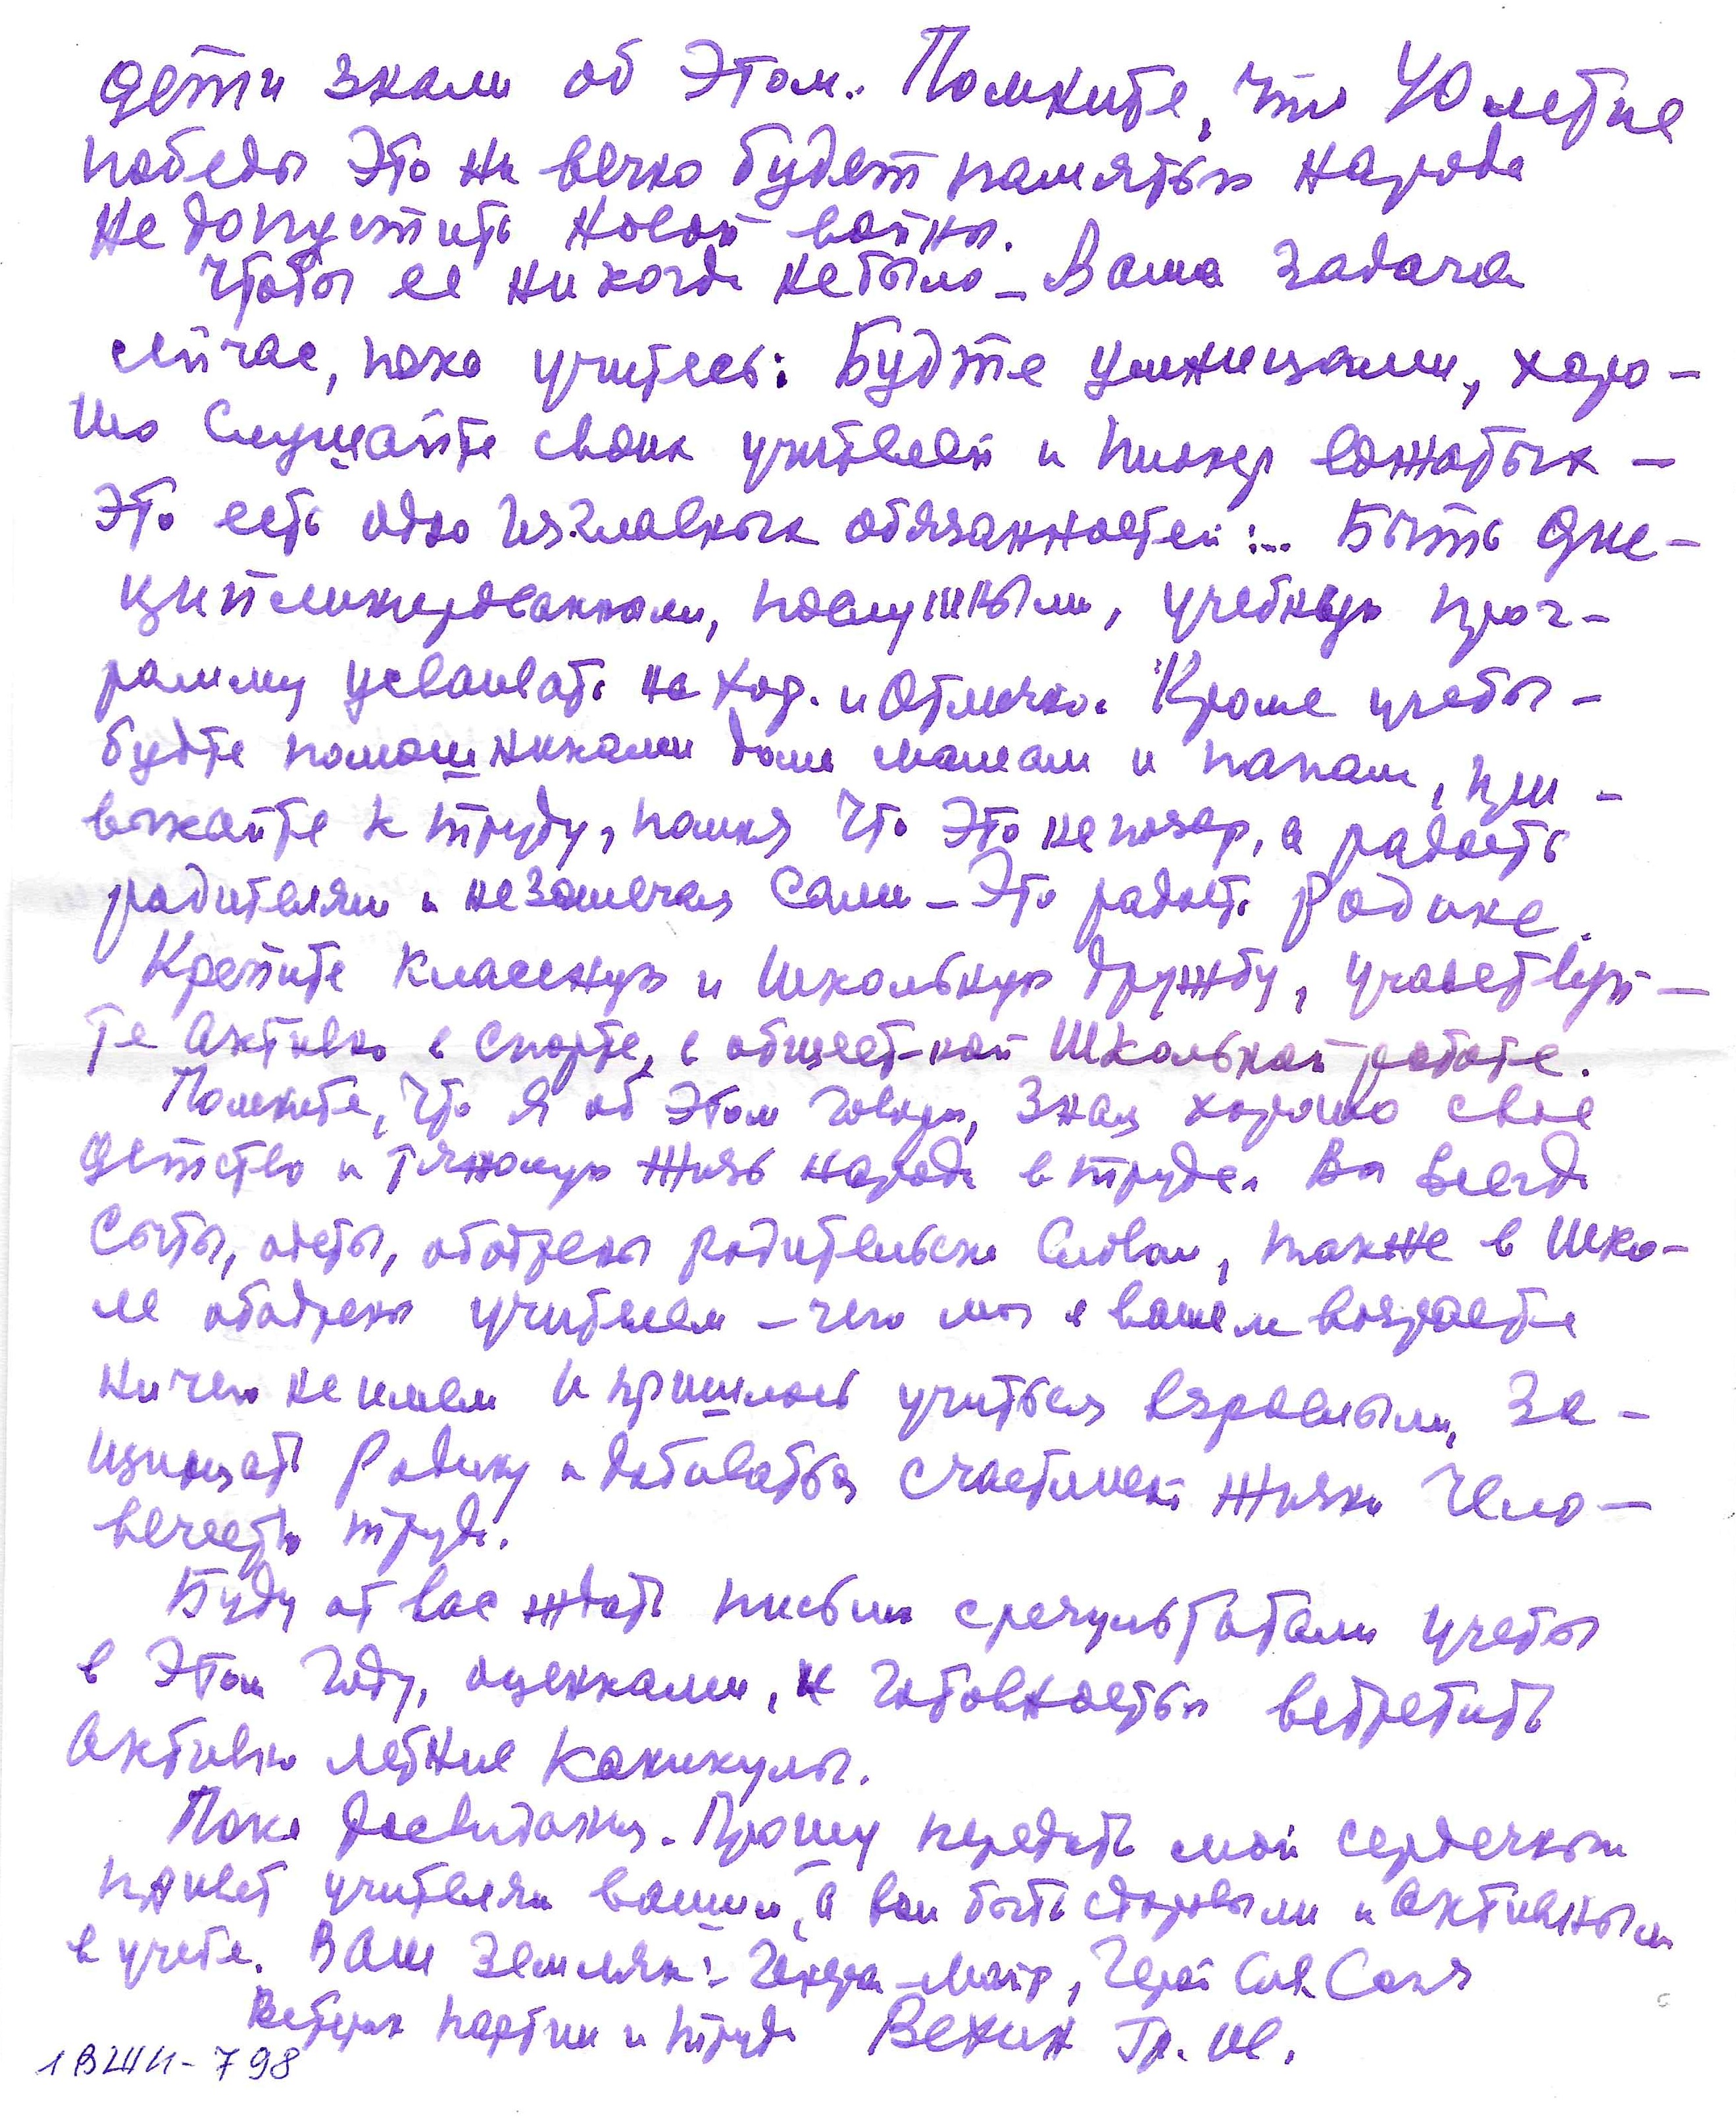 дети знали об этом.. Помните, что 40 летие
победы это на вечно будет памятью народа
не допустить новой войны.
Чтобы ее ни когда не было – Ваша задача
сейчас, пока учитесь: Будте умницами, хоро-
шо слушайте своих учителей и пионер вожатых –
это есть одно из главных обязанностей:.. Быть дис-
циплинированными, послушными, учебную прог-
рамму усваивать на хор. и отлично. Кроме учебы –
будте помошниками дома мамам и папам, при-
выкайте к труду, помня что это не позор, а радость
родителям и не замечая сами – Это радость Родине.
Крепите классную и школьную дружбу, участвуй-
те активно в спорте, в общест-ной школьной работе.
Помните, что я об этом говорю, зная хорошо свое
детство и тяжолую жизь народа в труде. Вы всегда
сыты, одеты, ободрены родительск. словом, также в шко-
ле ободрены учителем – чего мы в вашем возрасте
ничего не имели и пришлось учиться взрослыми, за-
щищать Родину и добиваться счастливой жизни чело-
вечеству труда.
Буду от вас ждать письма с результатами учебы
в этом году, оценками, и готовностью встретить
активно летние каникулы.
Пока досвидания. Прошу передать мой сердечный
привет учителям вашим, а вам быть здоровыми и активными
в учебе. Ваш земляк:- Генерал-майор, Герой Сов. Союза
Ветеран партии и труда Вехин Гр. Ив.
1ВШИ-798